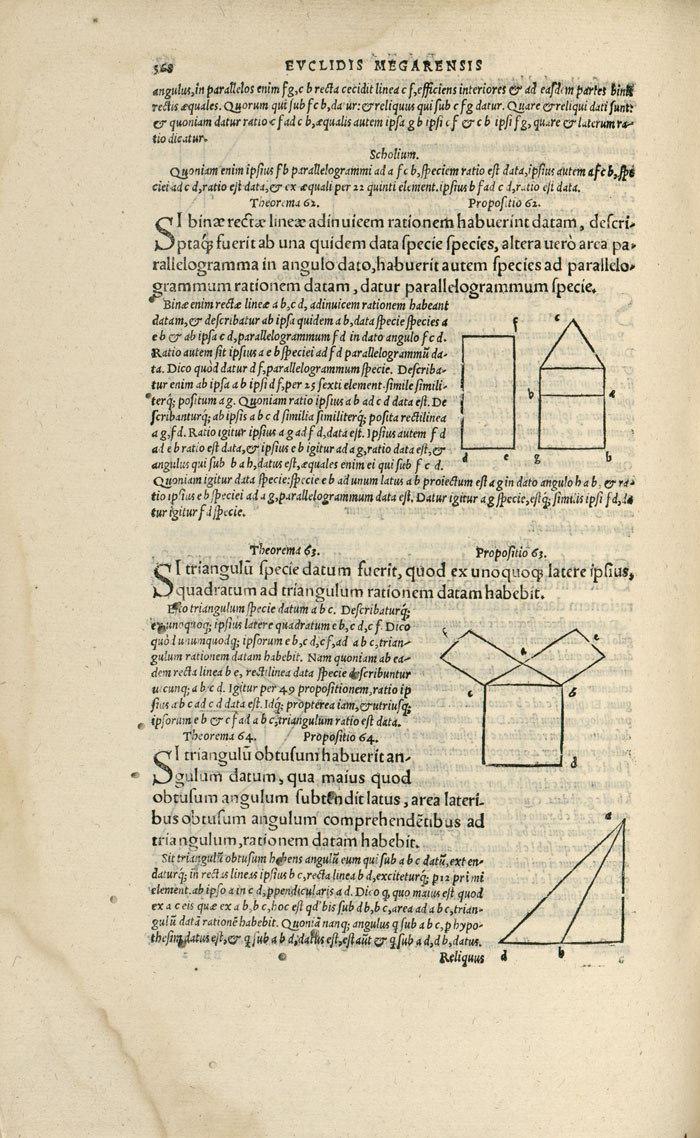 568 EVCLIDIS MEGARENSIS
angulus, in parallelos enim f g, c b recta cecidit linea c f, efficiens interiores & ad easdem partes binis
rectis æquales. Quorum qui sub f c b, datur: & reliquus qui sub c f g datur. Quare & reliqui dati sunt:
& quoniam datur ratio c f ad c b, æqualis autem ipsa g b ipsi c f & c b ipsi f g, quare & laterum ra-
tio dicatur.
Scholium.
Quoniam enim ipsius f b parallelogrammi ad a f c b, speciem ratio est data, ipsius autem a f c b, spe
ciei ad c d, ratio est data, & ex æquali per 22 quinti element. ipsius b f ad c d, ratio est data.
Theorema 62. Propositio 62.
SI binæ rectæ lineæ adinuicem rationem habuerint datam, descri-
ptaq́; fuerit ab una quidem data specie species, altera uerò area pa-
rallelogramma in angulo dato, habuerit autem species ad parallelo-
grammum rationem datam, datur parallelogrammum specie.
Binæ enim rectæ lineæ a b, c d, adinuicem rationem habeant
datam, & describatur ab ipsa quidem a b, data specie species a
e b & ab ipsa c d, parallelogrammum f d in dato angulo f c d.
Ratio autem sit ipsius a e b speciei ad f d parallelogrammũ da-
ta. Dico quòd datur d f, parallelogrammum specie. Describa-
tur enim ab ipsa a b ipsi d f, per 25 sexti element. simile simili-
terq́; positum a g. Quoniam ratio ipsius a b ad c d data est. De
scribanturq́; ab ipsis a b c d similia similiterq́; posita rectilinea
a g, f d. Ratio igitur ipsius a g ad f d, data est. Ipsius autem f d
ad e b ratio est data, & ipsius e b igitur ad a g, ratio data est, &
angulus qui sub b a h, datus est, æquales enim ei qui sub f c d.
Quoniam igitur data specie: specie e b ad unum latus a b proiectum est a g in dato angulo h a b, & ra-
tio ipsius e b speciei ad a g, parallelogrammum data est. Datur igitur a g specie, estq́; similis ipsi f d, da
tur igitur f d specie.
f c
b a
d e g b
Theorema 63. Propositio 63.
SI triangulũ specie datum fuerit, quod ex unoquoq; latere ipsius,
quadratum ad triangulum rationem datam habebit.
Esto triangulum specie datum a b c. Describaturq́;
ex unoquoq; ipsius latere quadratum e b, c d, c f. Dico
quòd unumquodq; ipsorum e b, c d, c f, ad a b c, trian-
gulum rationem datam habebit. Nam quoniam ab ea-
dem recta linea b c, rectilinea data specie describuntur
utcunq; a b c d. Igitur per 49 propositionem, ratio ip
sius a b c ad c d data est. Idq́; propterea iam, & utriusq;
ipsorum e b & c f ad a b c, triangulum ratio est data.
f e
a
c b
d
Theorema 64. Propositio 64.
SI triangulũ obtusum habuerit an-
gulum datum, qua maius quod
obtusum angulum subtendit latus, area lateri-
bus obtusum angulum comprehendẽtibus ad
triangulum, rationem datam habebit.
Sit triangulũ obtusum habens angulũ eum qui sub a b c datũ, exten-
daturq́; in rectas lineas ipsius b c, recta linea b d, exciteturq́; p 12 primi
element. ab ipso a in c d, ppendicularis a d. Dico q, quo maius est quod
ex a c eis quæ ex a b, b c, hoc est qd' bis sub d b, b c, area ad a b c, trian-
gulũ datã rationẽ habebit. Quoniã nanq; angulus q sub a b c, p hypo-
thesim datus est, & q sub a b d, datus est, est aũt & q sub a d, d b, datus.
Reliquus
a
d b c